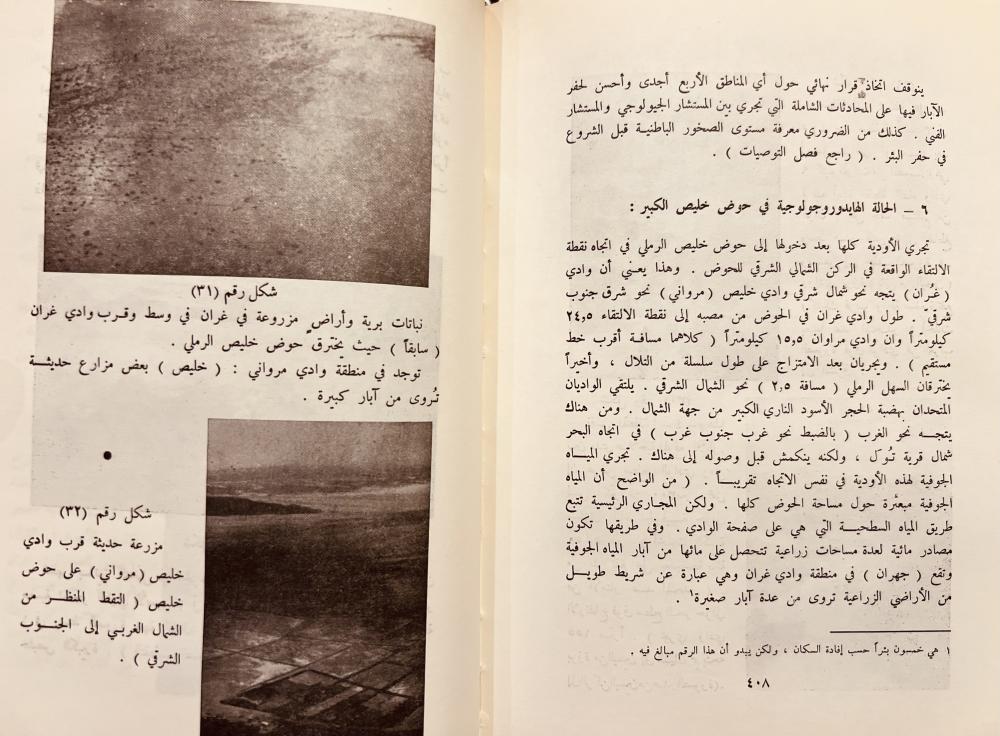 يتوقف اتخاذ قرار نهائي حول أي المناطق الأربع أجدى وأحسن لحفر
الآبار فيها على المحادثات الشاملة التي تجري بين المستشار الجيولوجي والمستشار
الفني . كذلك من الضروري معرفة مستوى الصخور الباطنية قبل الشروع
في حفر البئر . ( راجع فصل التوصيات ) .
٦ – الحالة الهايدوروجولوجية في حوض خليص الكبير :
تجري الأودية كلها بعد دخولها إلى حوض خليص الرملي في اتجاه نقطة
الالتقاء الواقعة في الركن الشمالي الشرقي للحوض . وهذا يعني أن وادي
( غُران ) يتجه نحو شمال شرقي وادي خليص ( مرواني ) نحو شرق جنوب
شرقيّ . طول وادي غران في الحوض من مصبه إلى نقطة الالتقاء ٢٤,٥
كيلومتراً وان وادي مراوان ١٥,٥ كيلومتراً ( كلاهما مسافة أقرب خط
مستقيم ) . ويجريان بعد الامتزاج على طول سلسلة من التلال ، وأخيراً
يخترقان السهل الرملي ( مسافة ٢,٥ ) نحو الشمال الشرقي . يلتقي الواديان
المتحدان بهضبة الحجر الأسود الناري الكبير من جهة الشمال . ومن هناك
يتجـــه نحو الغرب ( بالضبط نحو غرب جنوب غرب ) في اتجاه البحر
شمال قرية تُـوَل ، ولكنه ينكمش قبل وصوله إلى هناك . تجري الميــاه
الجوفية لهذه الأودية في نفس الاتجاه تقريبــاً . ( من الواضح أن المياه
الجوفية مبعثرة حول مساحة الحوض كلها . ولكن المجاري الرئيسية تتبع
طريق المياه السطحيــة التي هي على صفحة الوادي . وفي طريقها تكون
مصادر مائية لعدة مساحات زراعية تتحصل على مائها من آبار المياه الجوفية
وتقع ( جهران ) في منطقة وادي غران وهي عبارة عن شريط طويــل
من الأراضي الزراعية تروى من عدة آبار صغيرة١ .
١ هي خمسون بئراً حسب إفادة السكان ، ولكن يبدو أن هذا الرقم مبالغ فيه .
٤٠٨
شكل رقم (٣١)
نباتات برية وأراضٍ مزروعة في غران في وسط وقرب وادي غران
( سابقاً ) حيث يخترق حوض خليص الرملي .
توجد في منطقة وادي مرواني : ( خليص ) بعض مزارع حديثــة
تُروى من آبار كبيرة .
شكل رقم (٣٢)
مزرعة حديثة قرب وادي
خليص (مرواني) على حوض
خليص ( التقط المنظــر من
الشمال الغربــي إلى الجنــوب
الشرقي ) .